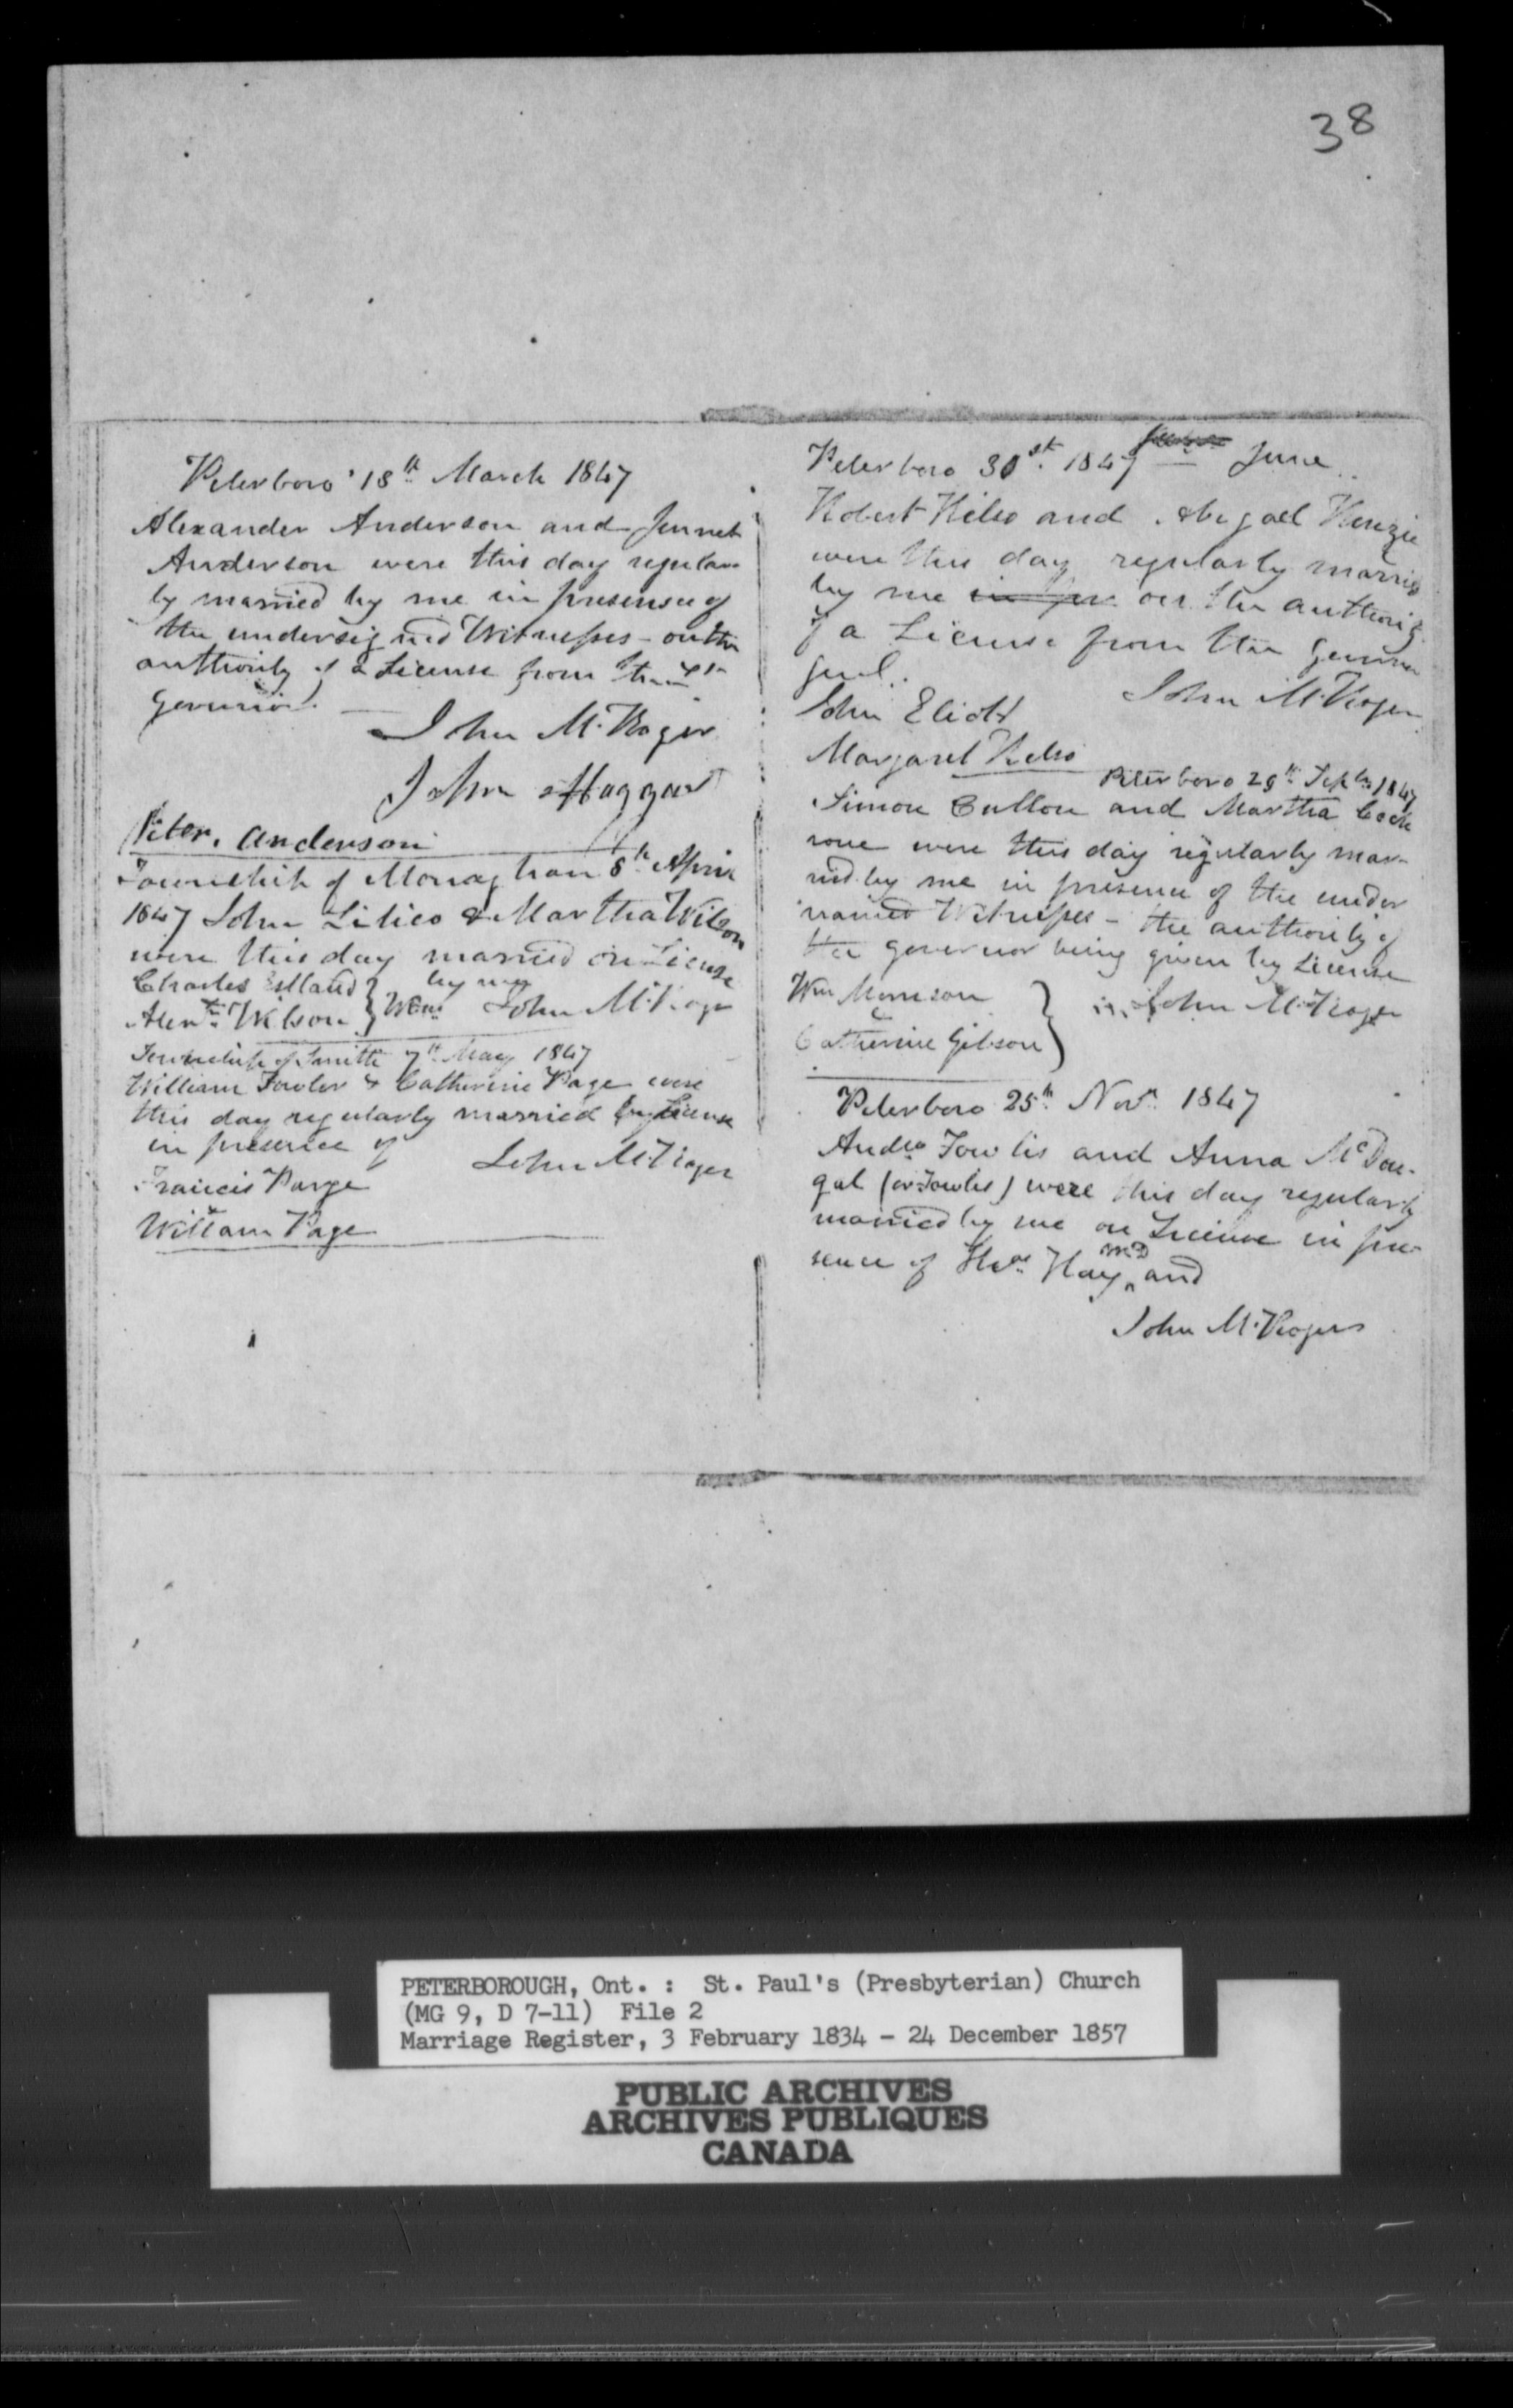 38
Peterboro' 18th March 1847
Alexander Anderson and Jennet
Anderson were this day regular
ly married by me in presensce of
the undersigned Witnesses - on the
authority of a License from the
Governor.
John M. Roger
John Haggart
Peter. Anderson
Township of Monaghan 8th April
1847 John Lilico & Martha Wilson
were this day married on License
by me
Charles
Alexr. Wilson } Witns John M. Roger
Township of Smith 7th May 1847
William Fowler & Catherine Page were
this day regularly married by License
in presence of
John M. Roger
Francis Page
William Page
Peterboro 30st. 1847 June
Robert Kelso and Abigael Kenzie
were this day regularly married
by me in pr on the authority
of a License from the Governor
Genl.
John M. Roger
John Eliott
Margaret Kelso
Peterboro 29th Septbr 1847
Simon Cullon and Martha Cock
rone were this day regularly mar-
ried by me in presence of the under
named Witnesses - the authority of
the governor being given by License
Wm Morrison
John M. Roger
Catherine Gibson }
Peterboro 25th Novr. 1847
Andw Fowlis and Anna McDou-
gal (or Fowlis) were this day regularly
married by me on License in pre-
sence of Thos. Hay MD and
John M. Roger
PETERBOROUGH, Ont. : St. Paul's (Presbyterian) Church
(MG 9, D 7-11) File 2
Marriage Register, 3 February 1834 - 24 December 1857
PUBLIC ARCHIVES
ARCHIVES PUBLIQUES
CANADA